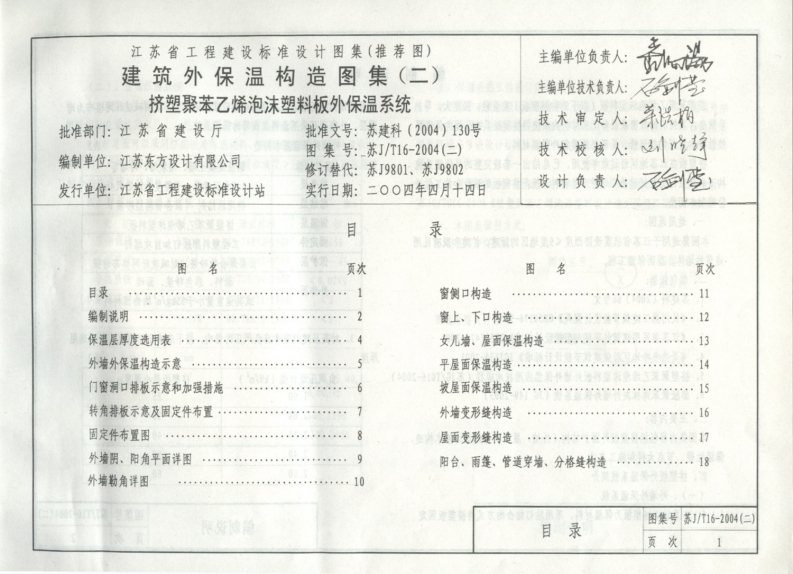 江苏省工程建设标准设计图集(推荐图)
建筑外保温构造图集(二)
挤塑聚苯乙烯泡沫塑料板外保温系统
批准部门: 江苏省建设厅
批准文号: 苏建科(2004)130号
编制单位: 江苏东方设计有限公司
图 集 号: 苏J/T16-2004(二)
修订替代: 苏J9801、苏J9802
发行单位: 江苏省工程建设标准设计站
实行日期: 二〇〇四年四月十四日
主编单位负责人:
主编单位技术负责人:
技术审定人:
技术校核人:
设计负责人:
目 录
图 名 页次
目录 1
编制说明 2
保温层厚度选用表 4
外墙外保温构造示意 5
门窗洞口排板示意和加强措施 6
转角排板示意及固定件布置 7
固定件布置图 8
外墙阴、阳角平面详图 9
外墙勒角详图 10
图 名 页次
窗侧口构造 11
窗上、下口构造 12
女儿墙、屋面保温构造 13
平屋面保温构造 14
坡屋面保温构造 15
外墙变形缝构造 16
屋面变形缝构造 17
阳台、雨蓬、管道穿墙、分格缝构造 18
目 录
图集号 苏J/T16-2004(二)
页 次 1